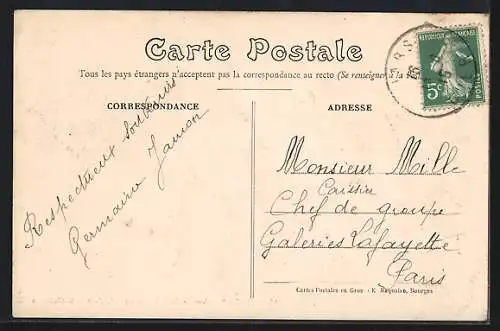 Carte Postale
Tous les pays étrangers n'acceptent pas la correspondance au recto (Se renseigner à la
CORRESPONDANCE
ADRESSE
REPUBLIQUE FRANÇAISE
5c
POSTES
Respectueux souvenirs
Germaine
Monsieur Mille
Caissier
Chef de groupe
Galeries Lafayette
Paris
Cartes Postales en Gros - E. Maquaire, Bourges